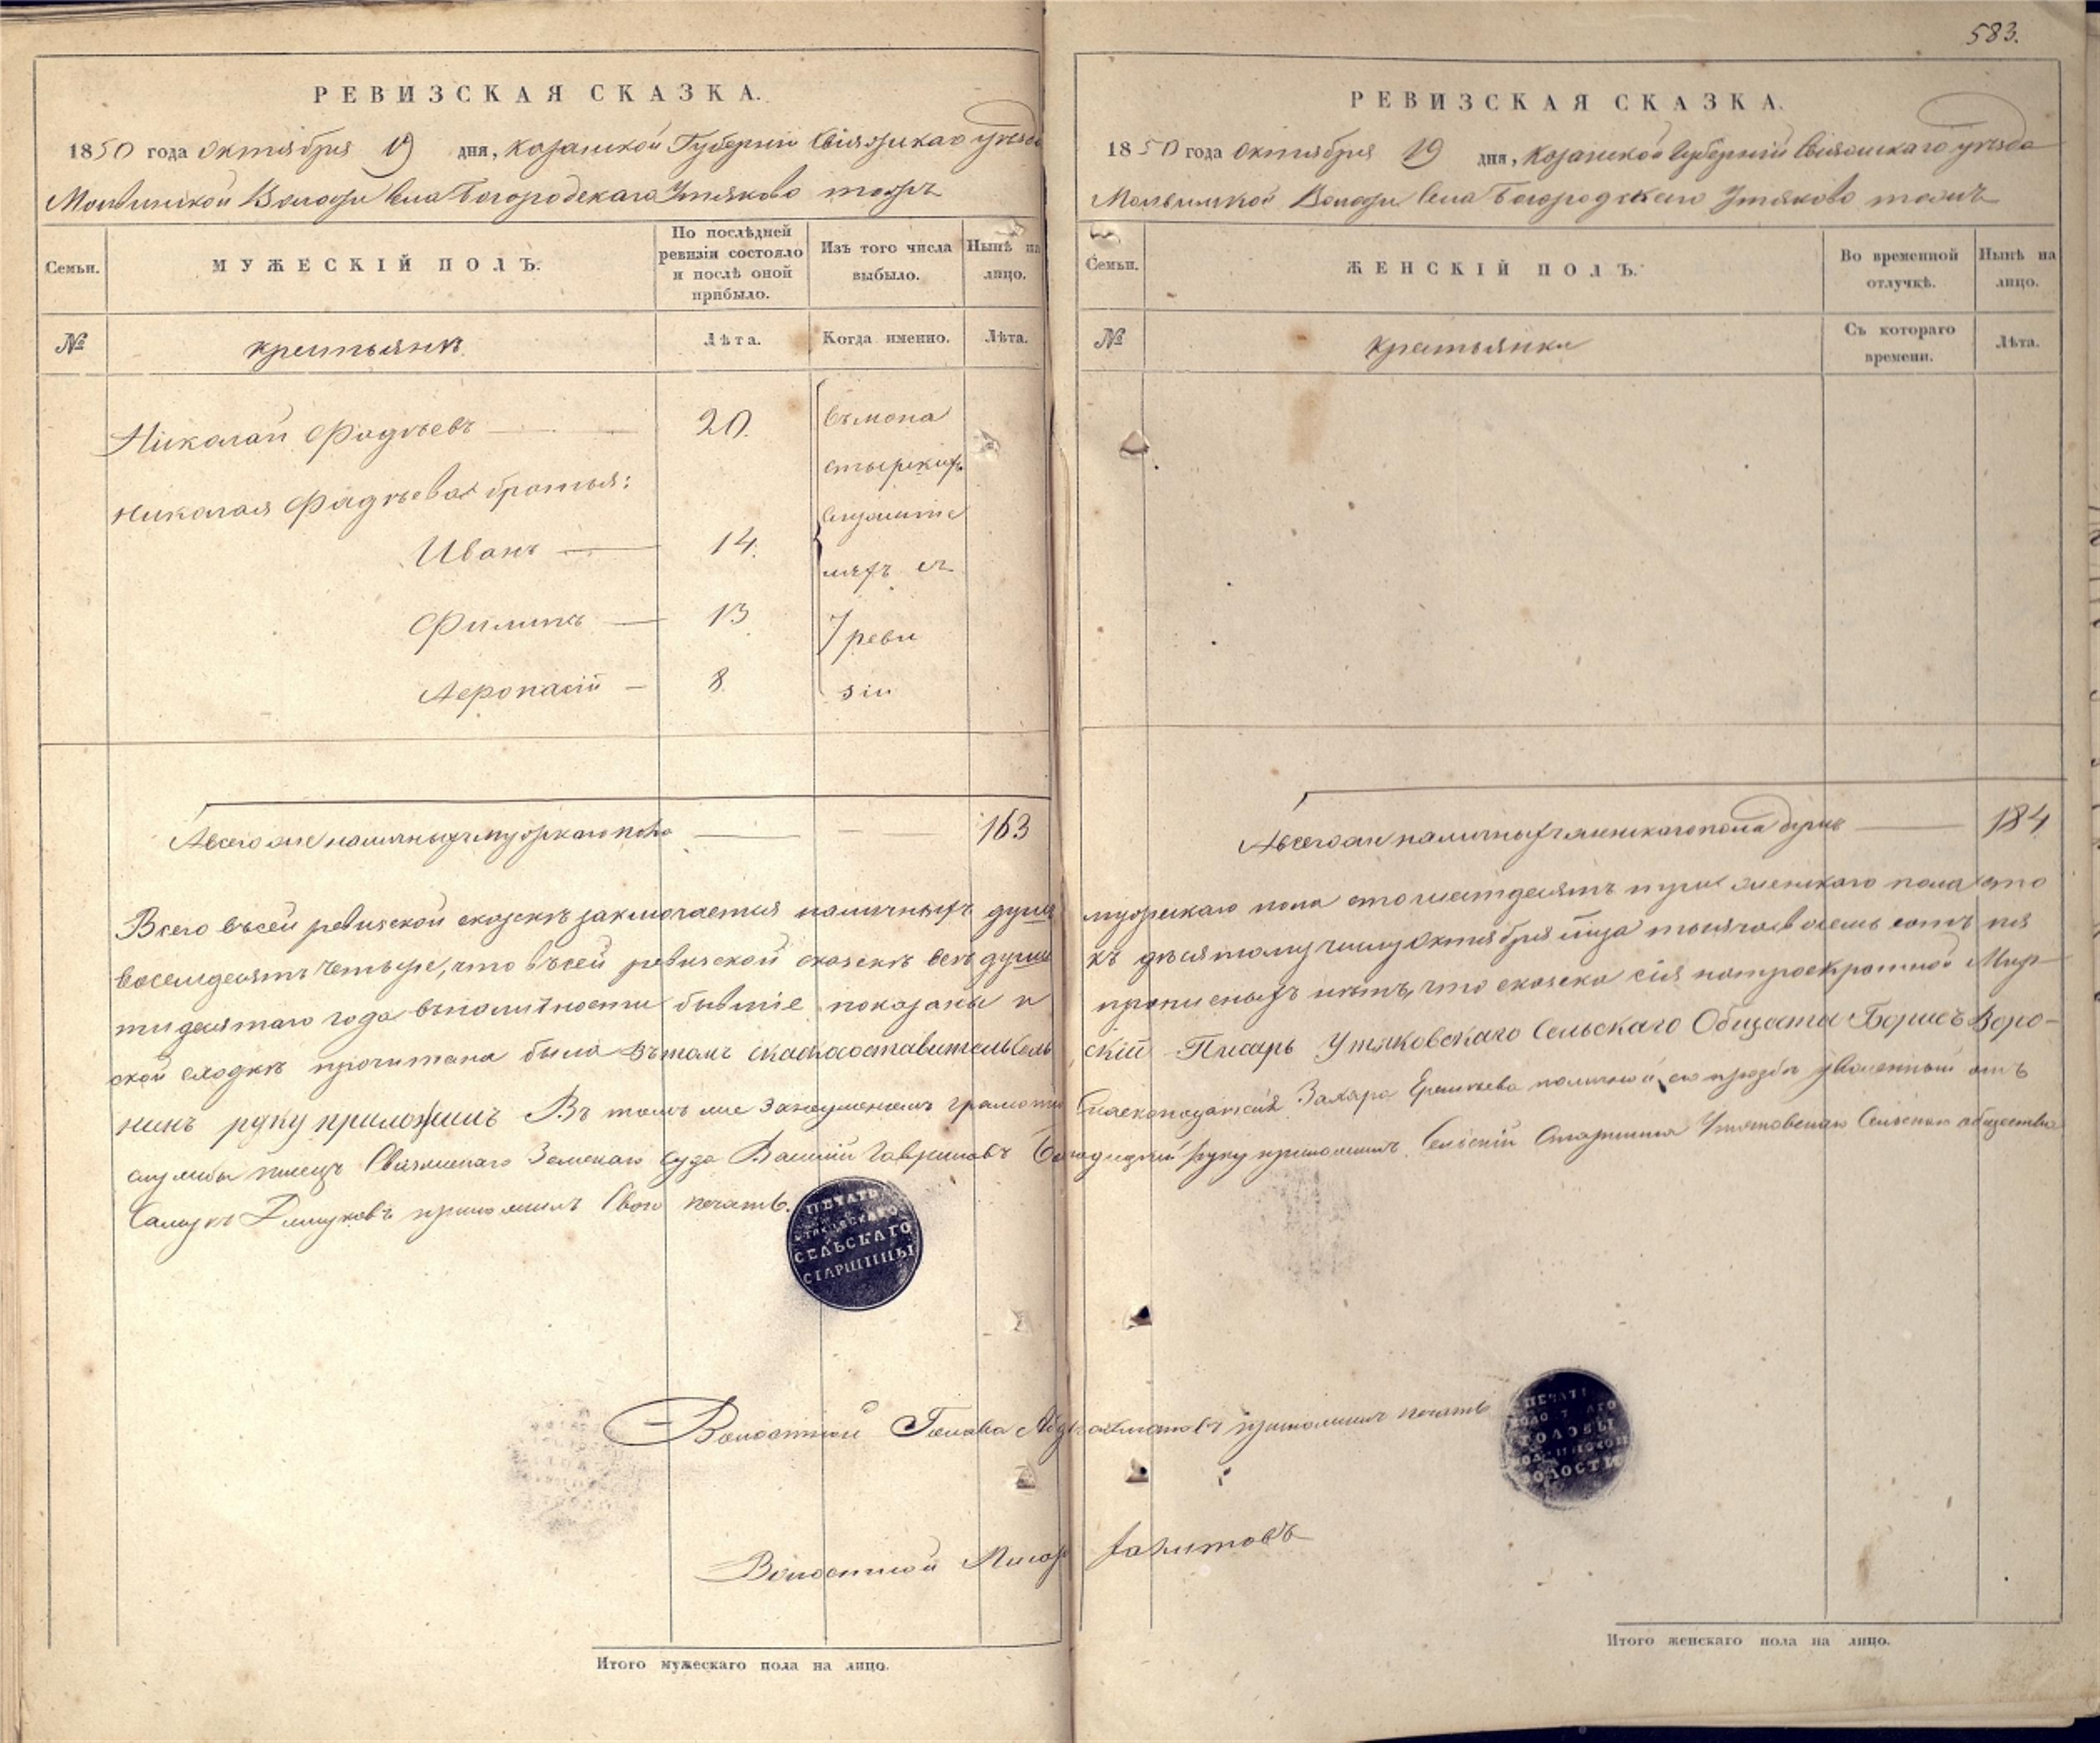 583.
РЕВИЗСКАЯ СКАЗКА.
1850 года Октября 19 дня, Казанской Губерніи Свіяжскаго уѣзда
Молвинской Волости Села Богородскаго Утяково тожъ
Семьи.
МУЖЕСКІЙ ПОЛЪ.
По послѣдней ревизіи состояло и послѣ оной прибыло.
Изъ того числа выбыло.
Нынѣ на лицо.
№
крестьянъ
Лѣта.
Когда именно.
Лѣта.
Николай Фадѣевъ 20.
Николая Фадѣева братья:
Иванъ 14.
Филипъ 13
Афонасій 8.
въ мона
стырских
служите
ляхъ съ
7 реви
зіи
А всего же наличныхъ мужскаго пола 163
Всего въ сей ревизской сказкѣ заключается наличныхъ душъ
восемдесятъ четыре, что въ сей ревизской сказкѣ всѣ души
тидесятаго года въ полности бывшіе показаны и
ской сходкѣ прочитана была въ томъ Сельскій
нинъ руку приложилъ Въ томъ же за неумениемъ грамоте
службы писецъ Свіяжскаго Земскаго Суда Василий Гавриловъ
приложилъ свою печать.
ПЕЧАТЬ
УТЯКОВСКАГО
СЕЛЬСКАГО
СТАРШИНЫ
Волостной Голова приложилъ печать
Волостной Писарь
Итого мужескаго пола на лицо.
РЕВИЗСКАЯ СКАЗКА.
1850 года Октября 19 дня, Казанской Губерніи Свіяжскаго уѣзда
Молвинской Волости Села Богородскаго Утяково тожъ
Семьи.
ЖЕНСКІЙ ПОЛЪ.
Во временной отлучкѣ.
Нынѣ на лицо.
№
крестьянки
Съ котораго времени.
Лѣта.
А всего же наличныхъ женскаго пола душъ 184
мужскаго пола сто шестдесятъ три женскаго пола сто
къ десятому числу Октября тысяча восемь сотъ пя
прописныхъ нѣтъ, что сказка сія по троекратной Мир-
скій Писарь Утяковскаго Сельскаго Общества Борисъ Воро-
Сказкоподателя Захара Еремѣева по личной его прозбѣ уволенный отъ
руку приложилъ. Сельскій Старшина Утяковскаго Сельскаго общества
ПЕЧАТЬ
ГОЛОВЫ
ВОЛОСТИ
Итого женскаго пола на лицо.